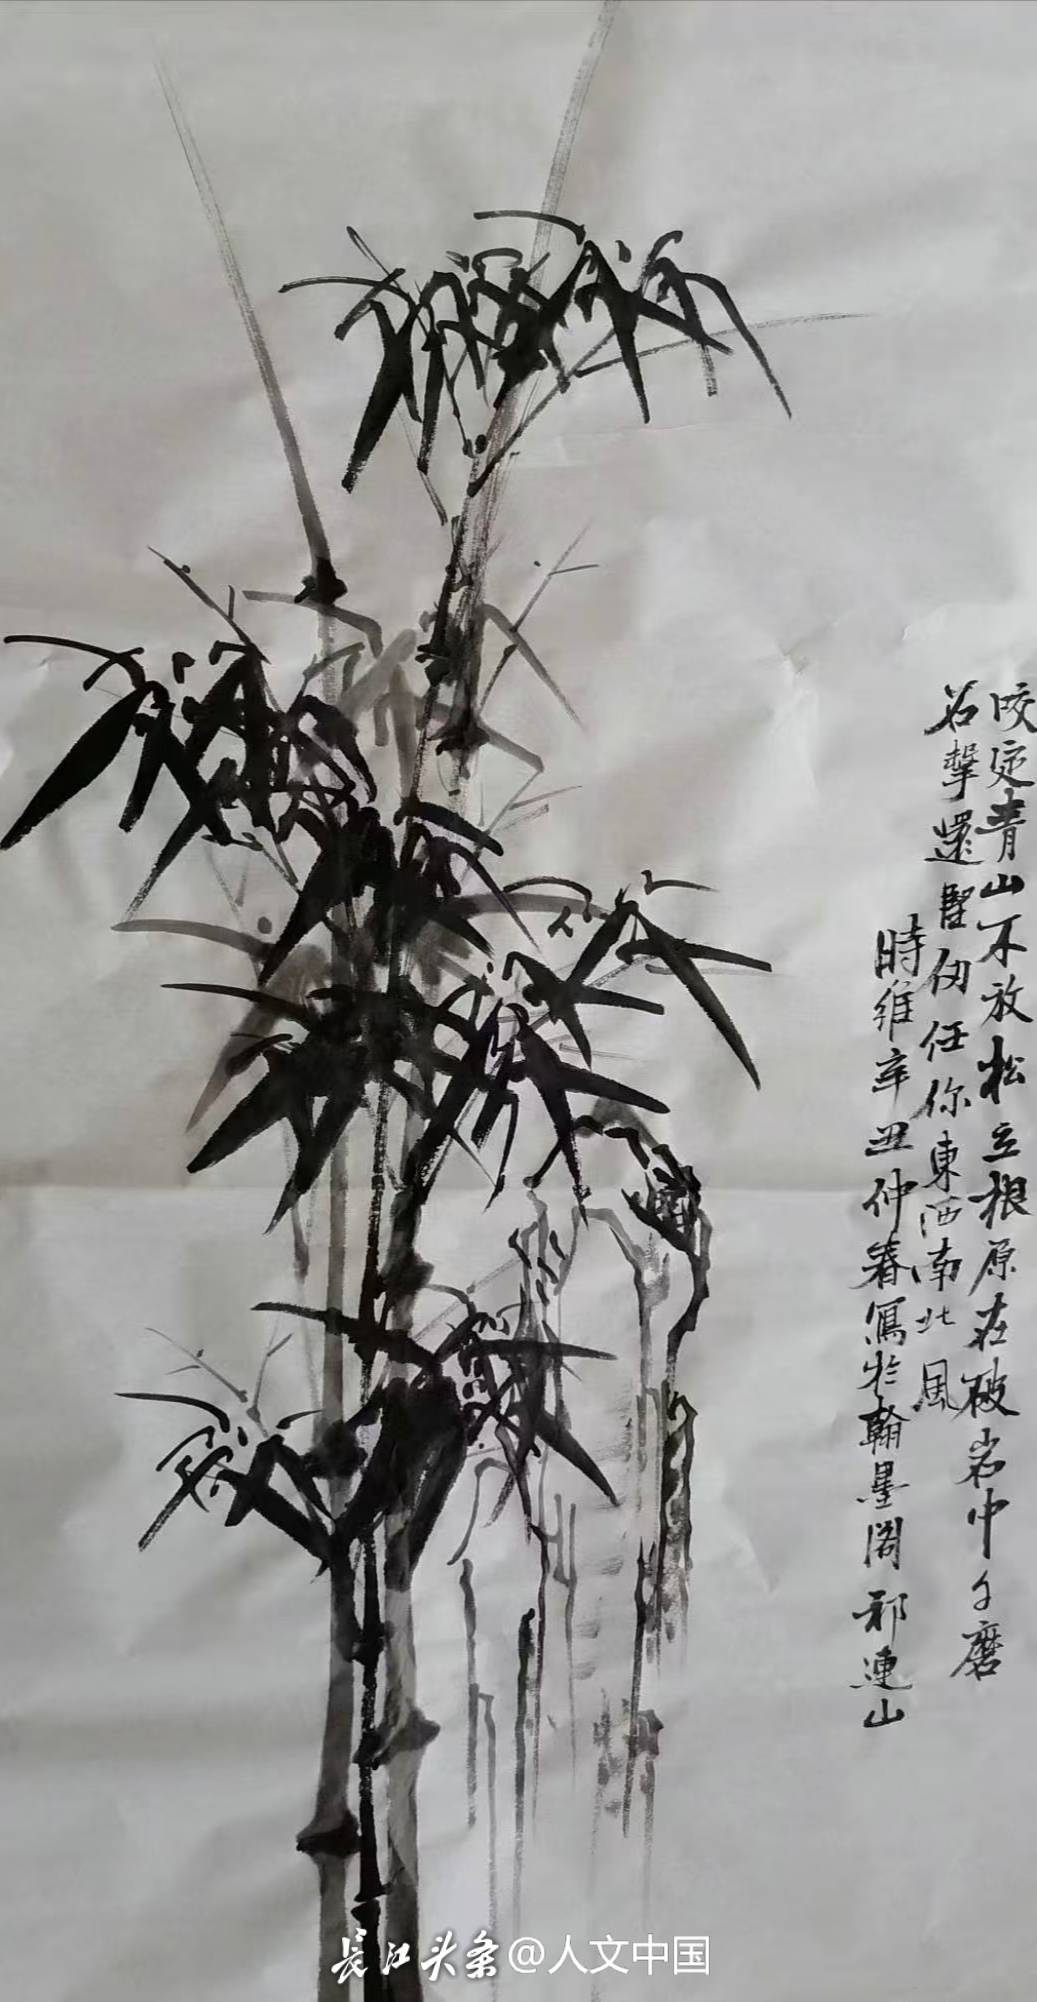 咬定青山不放松立根原在破岩中千磨
万击還坚仞任你東西南北風
時維辛丑仲春寫於翰墨阁 祁連山
長江头条@人文中国